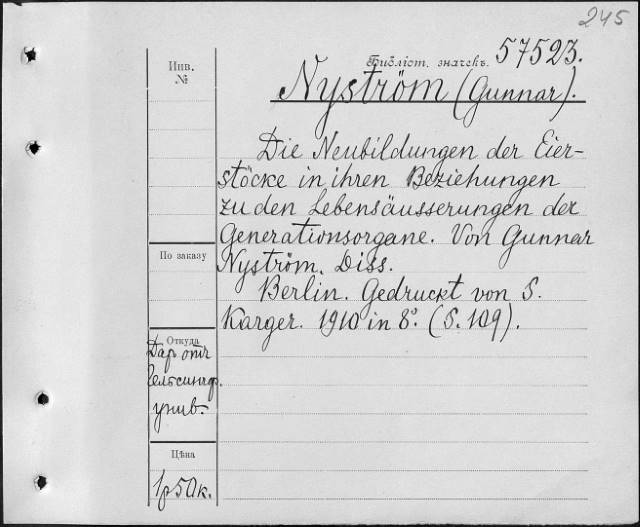 245
Инв.
№
Библіот. значекъ. 57523.
Nyström (Gunnar).
Die Neubildungen der Eier-
stöcke in ihren Beziehungen
zu den Lebensäusserungen der
Generationsorgane. Von Gunnar
Nyström. Diss.
Berlin. Gedruckt von S.
Karger. 1910 in 8°. (S. 109).
По заказу
Откуда
Даръ отъ
Гельсингф.
унив.
Цѣна
1р 50к.